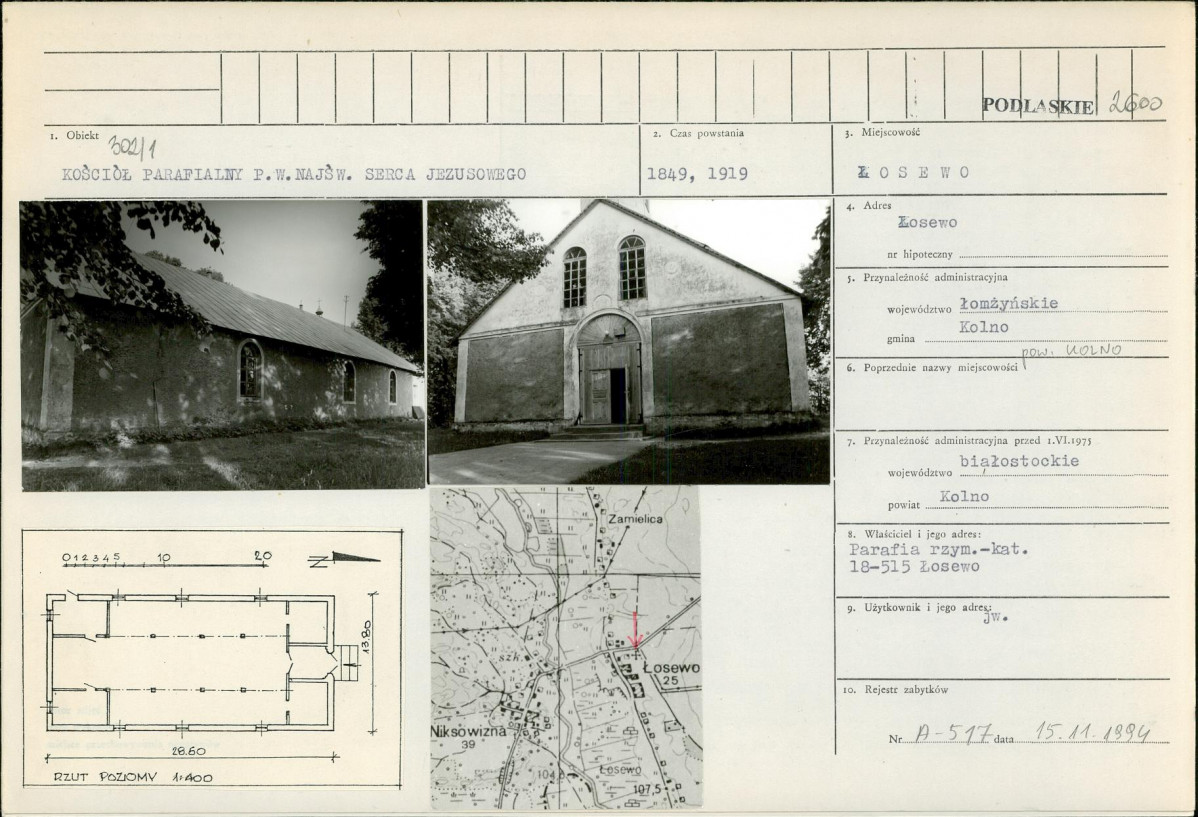 PODLASKIE 2600
1. Obiekt 302/1
KOŚCIÓŁ PARAFIALNY P.W.NAJŚW. SERCA JEZUSOWEGO
2. Czas powstania
1849, 1919
3. Miejscowość
ŁOSEWO
4. Adres
Łosewo
nr hipoteczny
5. Przynależność administracyjna
województwo łomżyńskie
gmina Kolno
pow. KOLNO
6. Poprzednie nazwy miejscowości
7. Przynależność administracyjna przed 1.VI.1975
województwo białostockie
powiat Kolno
8. Właściciel i jego adres:
Parafia rzym.-kat.
18-515 Łosewo
9. Użytkownik i jego adres:
jw.
10. Rejestr zabytków
Nr A-517 data 15.11.1994
0 1 2 3 4 5 10 20
N
13.80
28.60
RZUT POZIOMY 1:400
Zamielica
szk.
Łosewo
25
Niksowizna
39
Łosewo
107,5